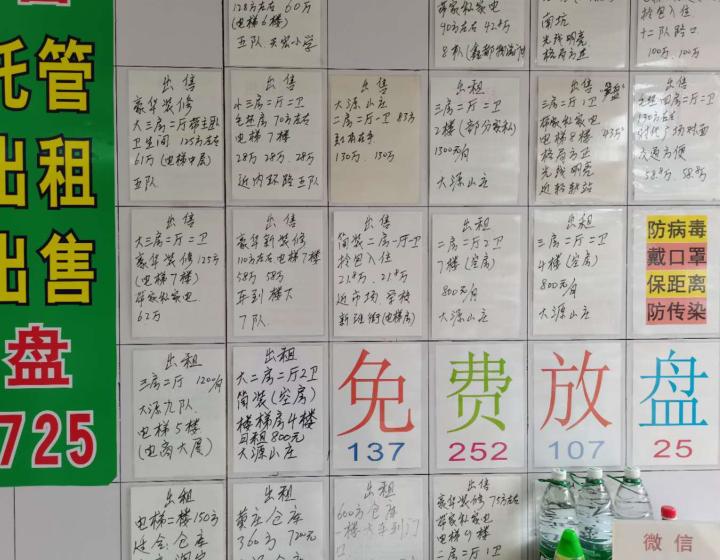 托管
出租
出售
盘
725
128方左右 60万
(电梯6楼)
90方左右 42.8万
南坑
光线明亮
格局方正
拎包入住
十二队路口
100万、100万
出售
豪华装修
大三房二厅带主人
卫生间 125方左右
61万(电梯中层)
五队
出售
小三房二厅二卫
毛坯房 70方左右
电梯7楼
28万 28万、28万
近内环路五队
出售
大源山庄
二房二厅一卫 83方
130万、130万
出租
三房二厅二卫
2楼(部分家私)
1300元/月
大源山庄
出售
三房二厅1卫
带家私家电
电梯8楼 43万
格局方正
光线明亮
出售
毛坯四房二厅二卫
130方左右
交通方便
58.8万、58.8万
出售
大三房二厅二卫
豪华装修 125方
(电梯7楼)
带家私家电
62万
出售
豪华新装修
110方左右电梯7楼
58万 58万
车到楼下
7队
出售
简装二房一厅一卫
拎包入住
21.8万、21.8万
近市场、学校
新班街(电梯房)
出租
二房二厅2卫
7楼(空房)
800元/月
大源山庄
出租
三房二厅二卫
4楼(空房)
800元/月
大源山庄
防病毒
戴口罩
保距离
防传染
出租
三房二厅 1200/月
大源九队
电梯5楼
(电商大厦)
出租
大二房二厅2卫
简装(空房)
楼梯房4楼
月租800元
大源山庄
免
137
费
252
放
107
盘
25
出租
电梯二楼150方
出租
黄庄仓库
360方 7200元
600方仓库
一楼大车到门
口
出售
豪华装修 75方左右
带家私家电
电梯9楼
二房二厅1卫
微信